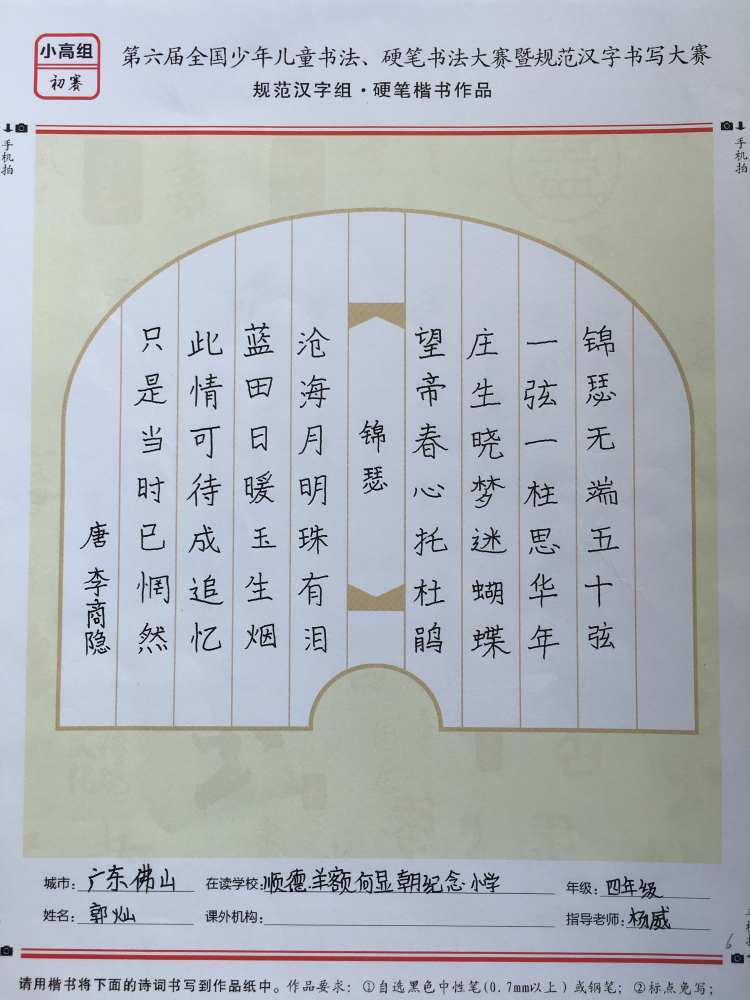 小高组
初赛
第六届全国少年儿童书法、硬笔书法大赛暨规范汉字书写大赛
规范汉字组·硬笔楷书作品
手机拍
手机拍
锦瑟无端五十弦
一弦一柱思华年
庄生晓梦迷蝴蝶
望帝春心托杜鹃
锦瑟
沧海月明珠有泪
蓝田日暖玉生烟
此情可待成追忆
只是当时已惘然
唐 李商隐
城市：广东佛山 在读学校：顺德羊额何显朝纪念小学 年级：四年级
姓名：郭灿 课外机构： 指导老师：杨威
6
请用楷书将下面的诗词书写到作品纸中。作品要求：①自选黑色中性笔(0.7mm以上)或钢笔；②标点免写；